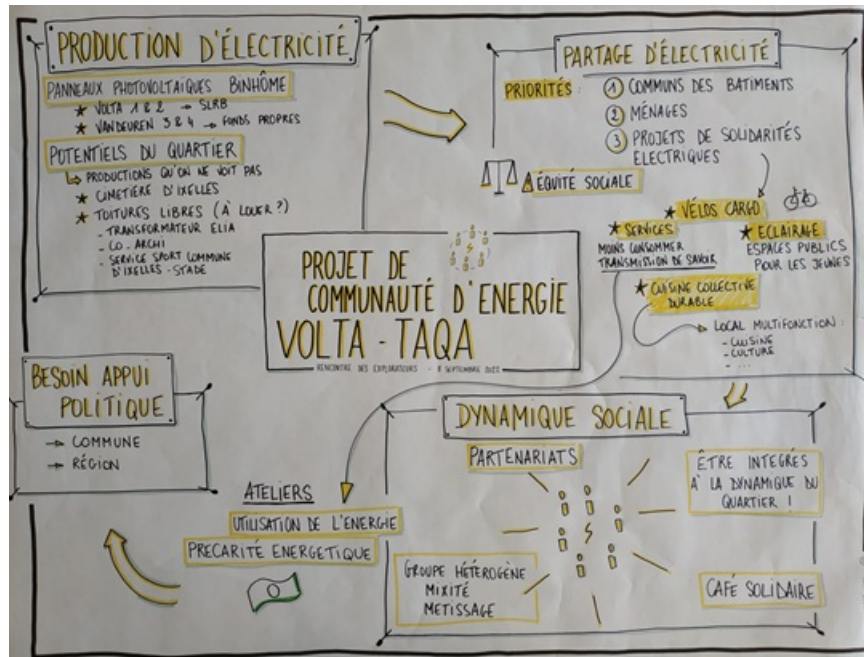 PRODUCTION D'ÉLECTRICITÉ
PANNEAUX PHOTOVOLTAÏQUES BINHÔME
★ VOLTA 1 & 2 → SLRB
★ VANDEUREN 3 & 4 → FONDS PROPRES
POTENTIELS DU QUARTIER
↳ PRODUCTIONS QU'ON NE VOIT PAS
★ CIMETIÈRE D'IXELLES
★ TOITURES LIBRES (À LOUER ?)
- TRANSFORMATEUR ELIA
- CO-ARCHI
- SERVICE SPORT COMMUNE
D'IXELLES - STADE
PARTAGE D'ÉLECTRICITÉ
PRIORITÉS :
① COMMUNS DES BATIMENTS
② MÉNAGES
③ PROJETS DE SOLIDARITÉS
ELECTRIQUES
⚠ ÉQUITÉ SOCIALE
★ VÉLOS CARGO
★ SERVICES
MOINS CONSOMMER
TRANSMISSION DE SAVOIR
★ ECLAIRAGE
ESPACES PUBLICS
POUR LES JEUNES
★ CUISINE COLLECTIVE
DURABLE
→ LOCAL MULTIFONCTION :
- CUISINE
- CULTURE
- ...
PROJET DE
COMMUNAUTÉ D'ENERGIE
VOLTA - TAQA
RENCONTRE DES EXPLORATEURS - 8 SEPTEMBRE 2022
BESOIN APPUI
POLITIQUE
→ COMMUNE
→ RÉGION
ATELIERS
UTILISATION DE L'ENERGIE
PRECARITÉ ENERGETIQUE
DYNAMIQUE SOCIALE
PARTENARIATS
ÊTRE INTEGRÉS
À LA DYNAMIQUE DU
QUARTIER !
GROUPE HÉTÉROGÈNE
MIXITÉ
METISSAGE
CAFÉ SOLIDAIRE